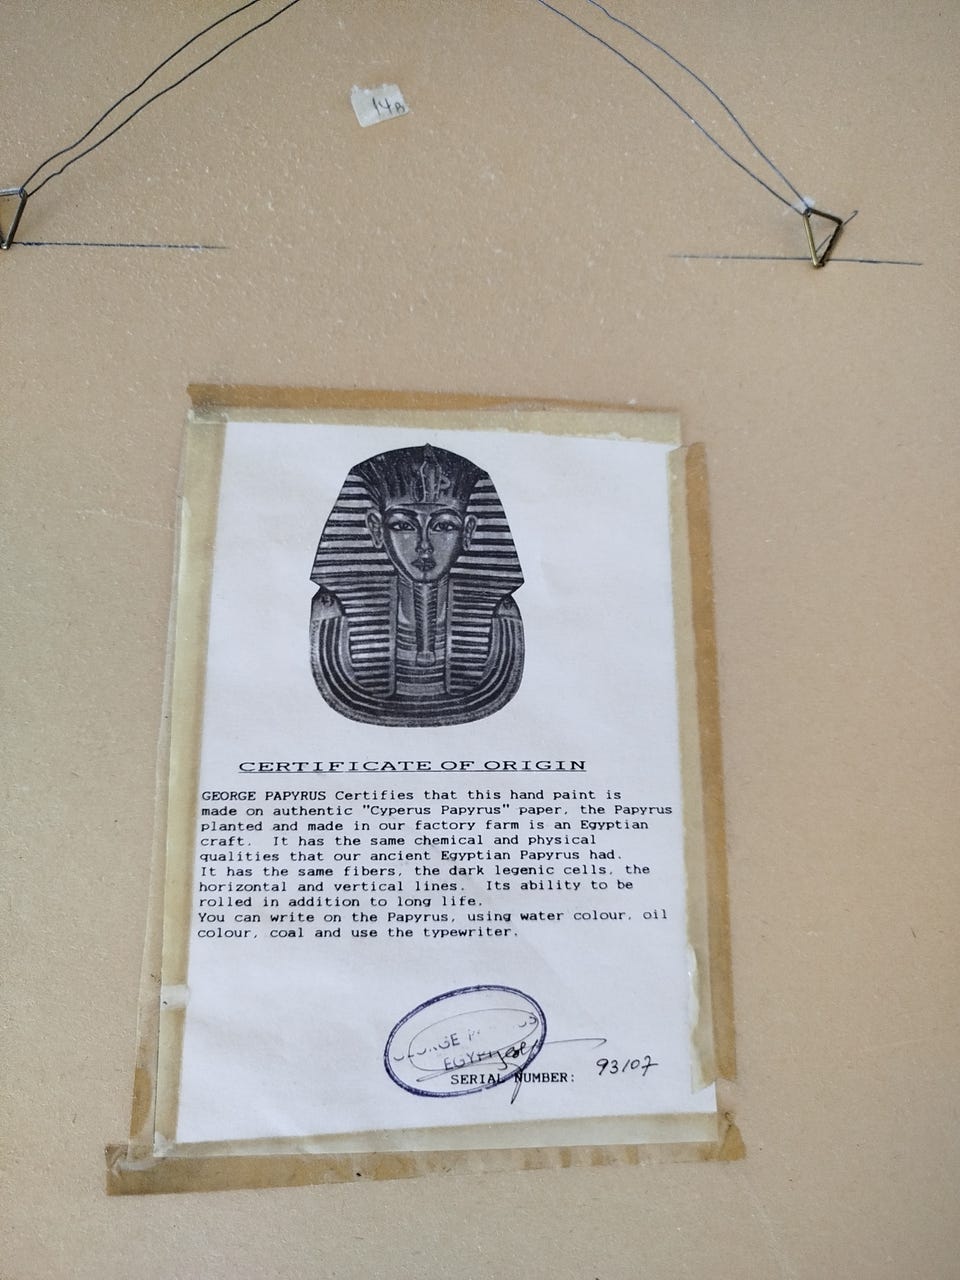 14B
CERTIFICATE OF ORIGIN
GEORGE PAPYRUS Certifies that this hand paint is
made on authentic "Cyperus Papyrus" paper, the Papyrus
planted and made in our factory farm is an Egyptian
craft. It has the same chemical and physical
qualities that our ancient Egyptian Papyrus had.
It has the same fibers, the dark legenic cells, the
horizontal and vertical lines. Its ability to be
rolled in addition to long life.
You can write on the Papyrus, using water colour, oil
colour, coal and use the typewriter.
EGYPT
SERIAL NUMBER: 93107